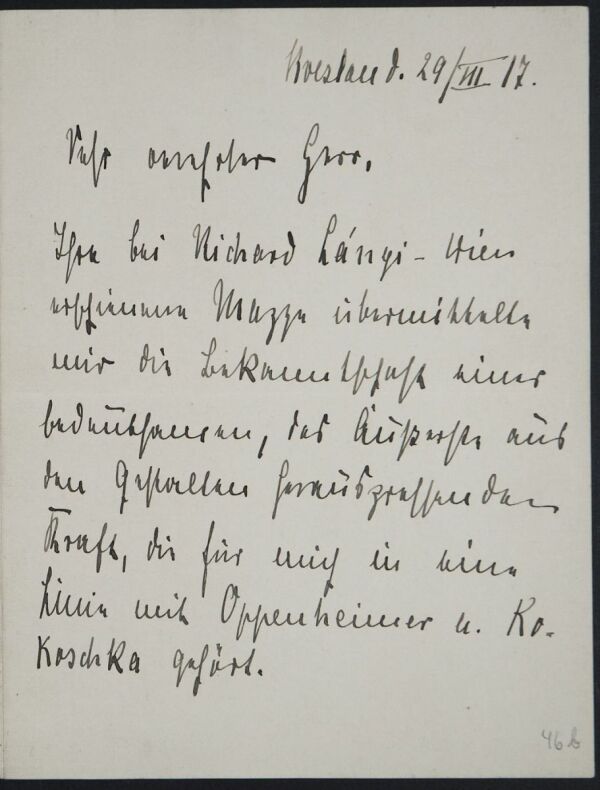 Breslau d. 29/III 17.
Sehr verehrter Herr,
Ihre bei Richard Lányi - Wien
erschienene Mappe übermittelte
mir die Bekanntschaft einer
bedeuthsamen, das Äußerste aus
den Gestalten herauspressenden
Kraft, die für mich in eine
Linie mit Oppenheimer u. Ko-
koschka gehört.
46b